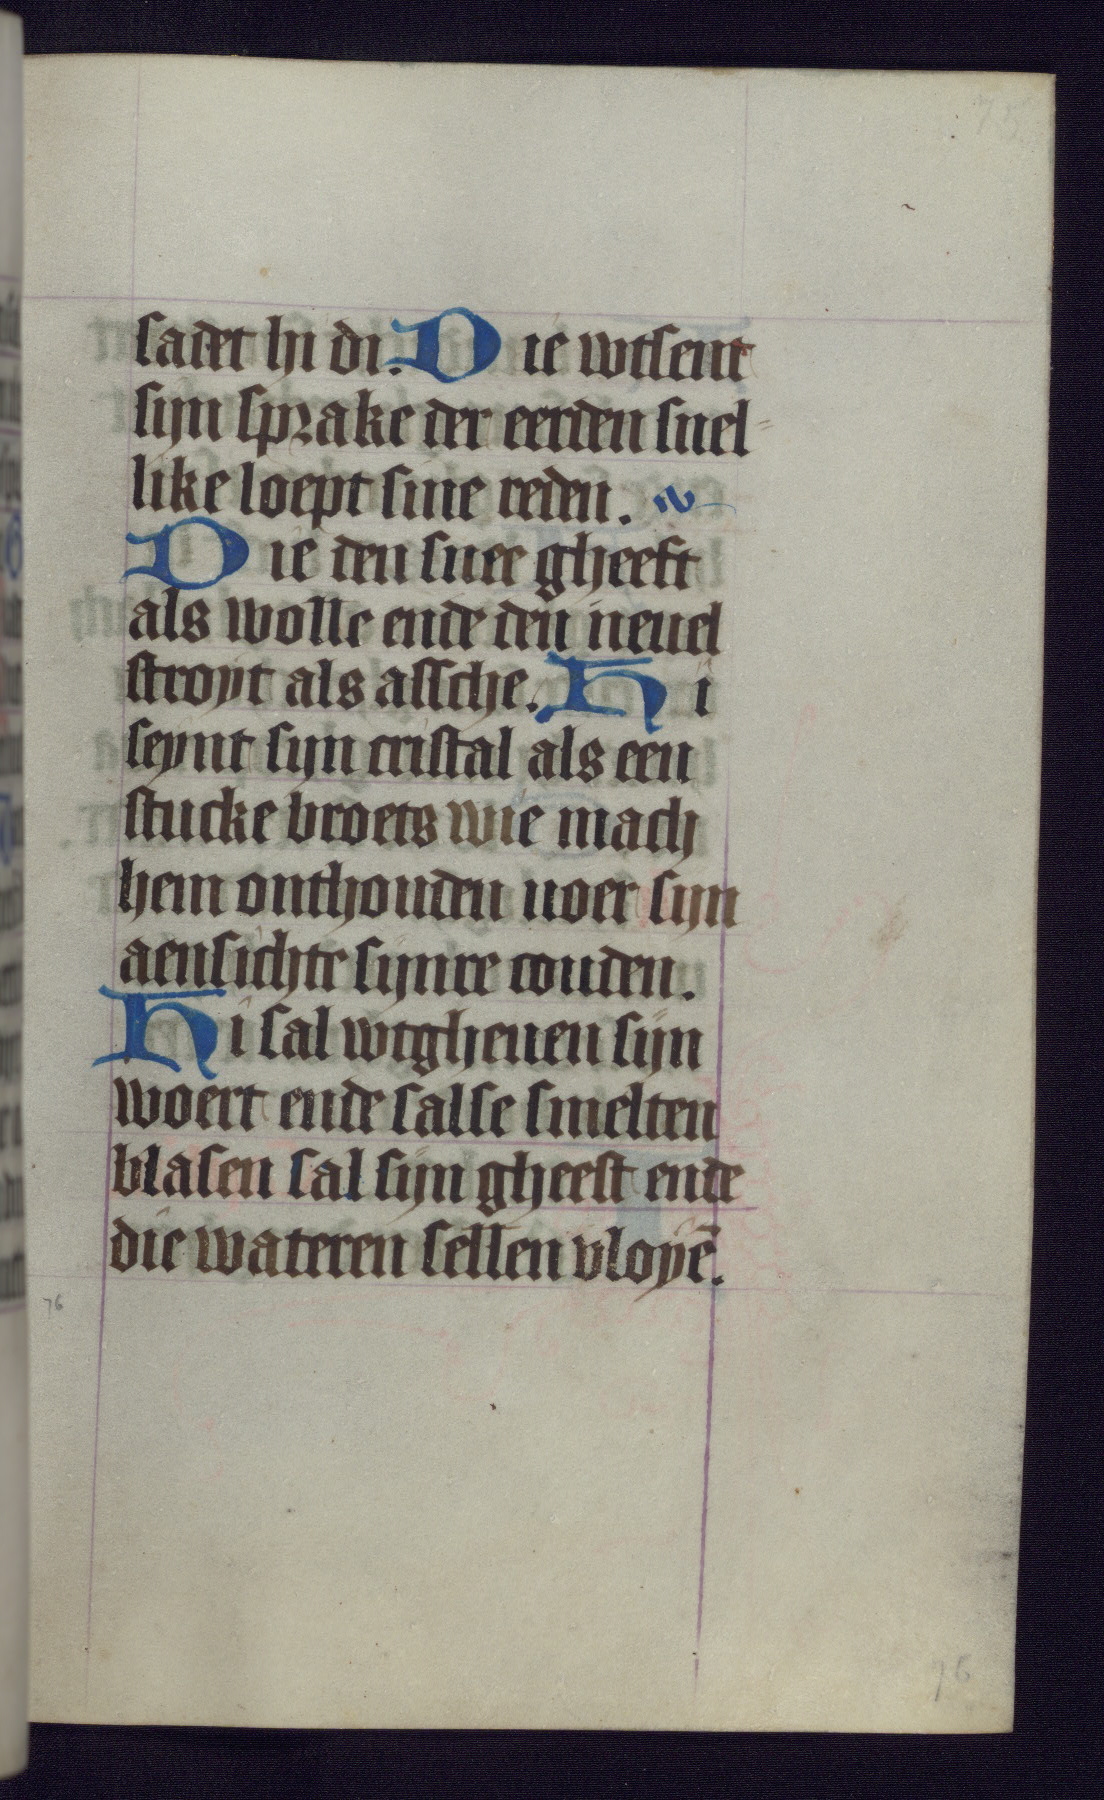 75
sadet hi di. Die wtsent
sijn sprake der eerden snel
like loept sine reden.
Die den snee gheeft
als wolle ende den neuel
stroyt als assche. Hi
seynt sijn cristal als een
stucke broets wie mach
hem onthouden uoer sijn
aensichte sijnre couden.
Hi sal wtgheuen sijn
woert ende salse smelten
blasen sal sijn gheest ende
die wateren sellen vloyē.
76
76